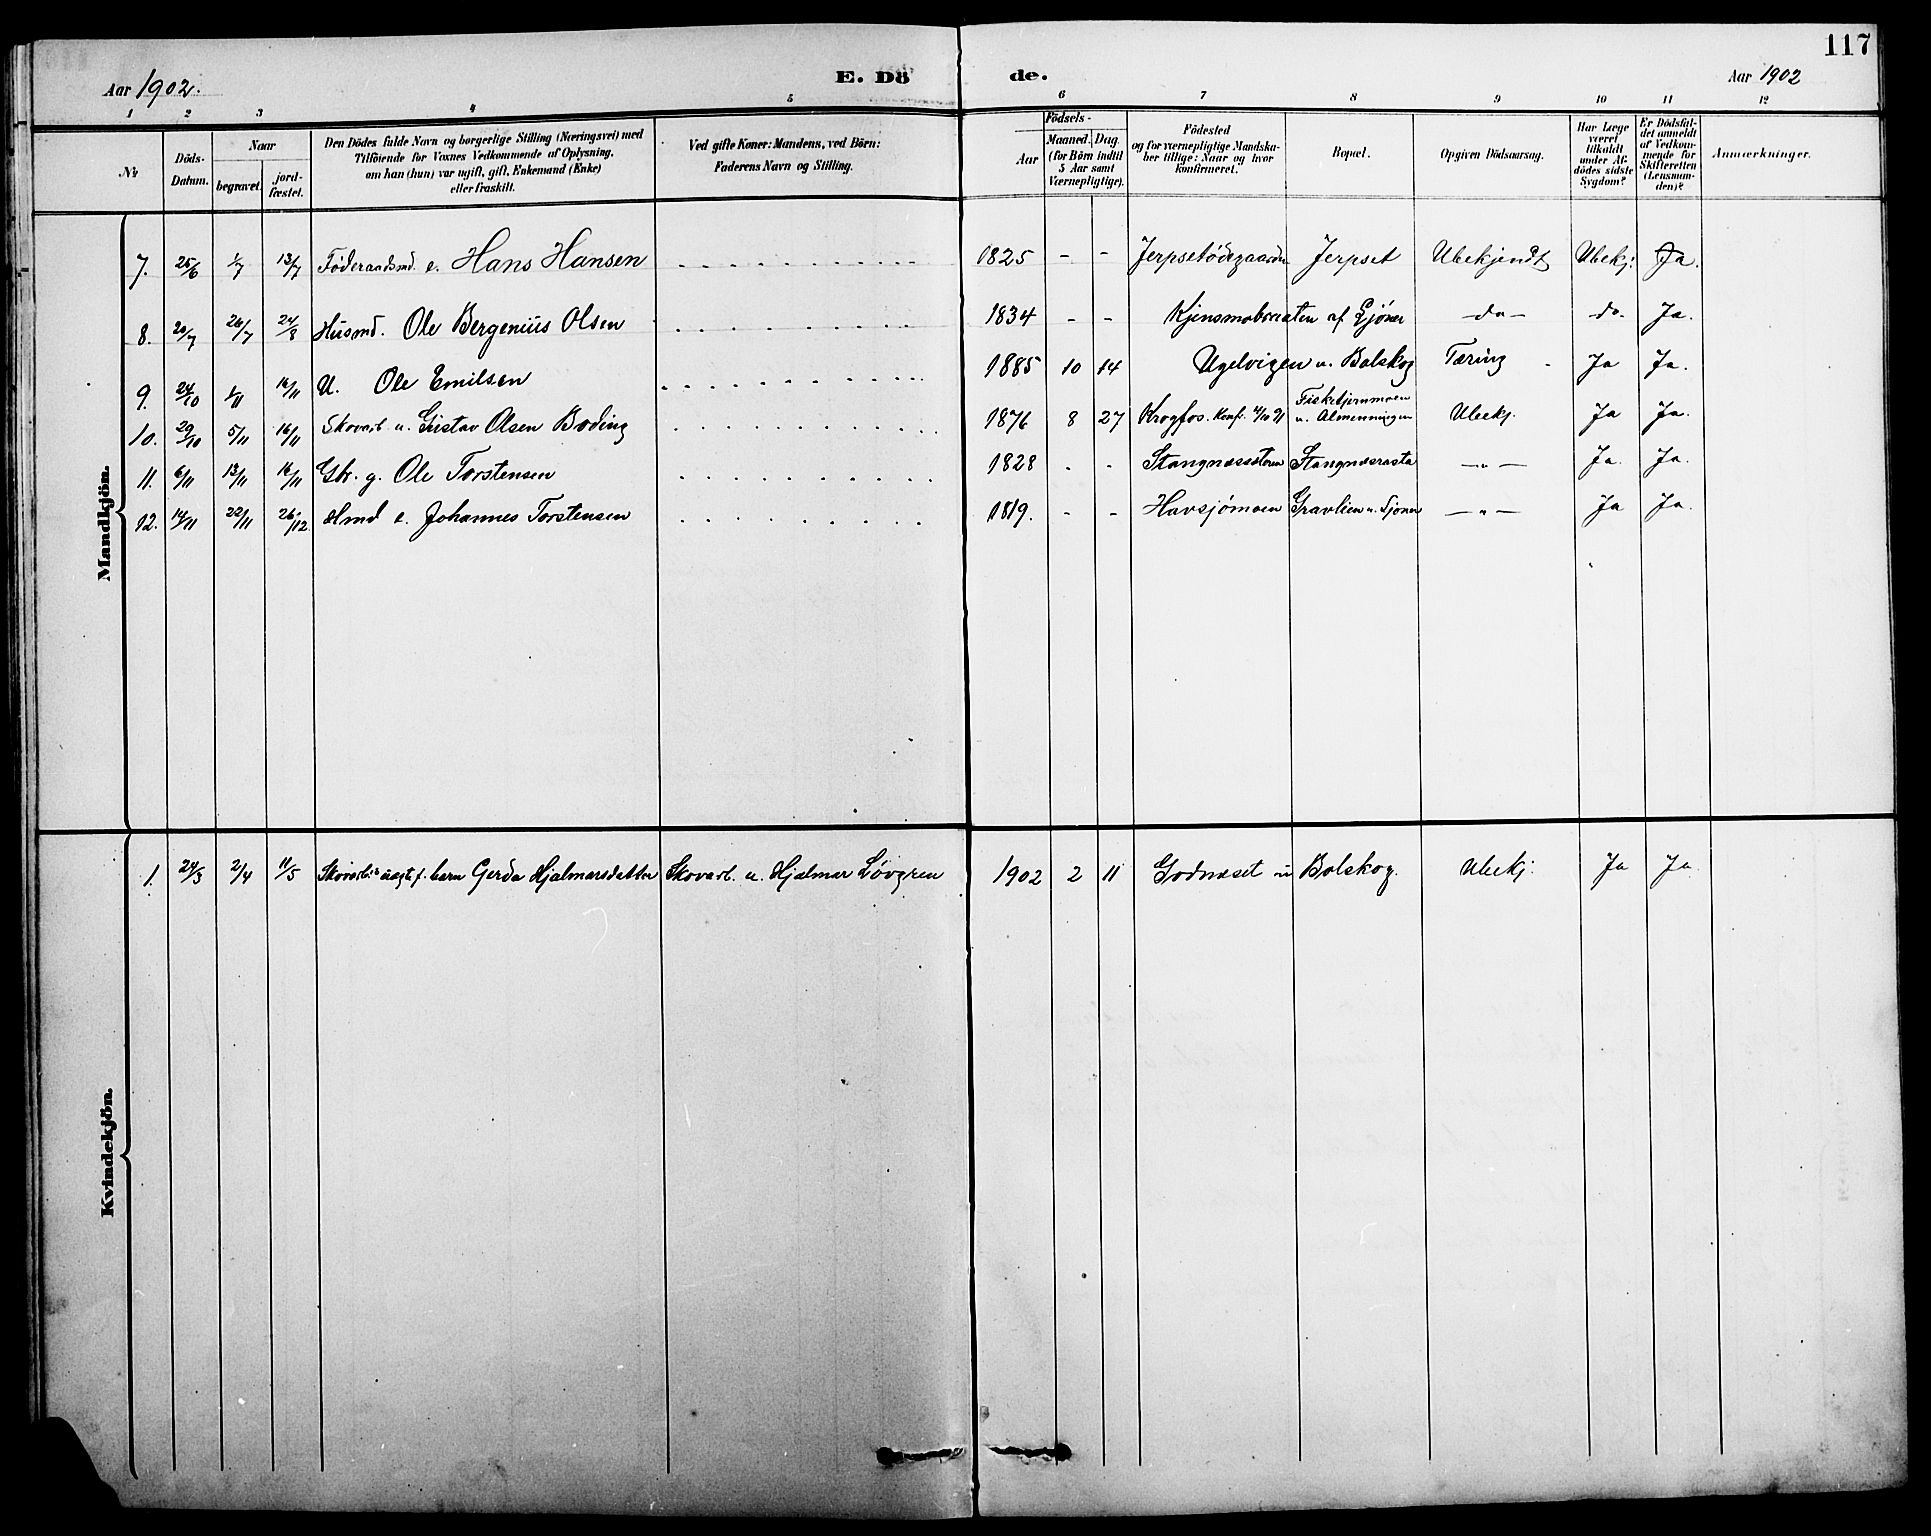 117
Aar 1902.
E. Dö
de.
Aar 1902
1 2 3 4 5 6 7 8 9 10 11 12
No
Döds-
Datum.
Naar
begravet.
jord-
fæstet.
Den Dödes fulde Navn og borgerlige Stilling (Næringsvei) med
Tilföiende for Voxnes Vedkommende af Oplysning,
om han (hun) var ugift, gift, Enkemand (Enke)
eller fraskilt.
Ved gifte Koner: Mandens, ved Börn:
Faderens Navn og Stilling.
Födsels-
Aar
Maaned. Dag.
(for Börn indtil
5 Aar samt
Værnepligtige).
Födested
og for værnepligtige Mandska-
ber tillige: Naar og hvor
konfirmeret.
Bopæl.
Opgiven Dödsaarsag.
Har Læge
været
tilkaldt
under Af-
dödes sidste
Sygdom?
Er Dödsfal-
det anmeldt
af Vedkom-
mende for
Skifteretten
(Lensman-
den)?
Anmærkninger.
Mandkjön.
7. 25/6 1/7 13/7 Föderaadsmd. e. Hans Hansen 1825 - - Jerpsetødegaarden Jerpset Ubekjendt Ubekj. Ja.
8. 20/7 26/7 24/8 Husmd. Ole Bergenius Olsen 1834 - - af Gjöner - do - do- Ja.
9. 24/10 1/11 16/11 U. Ole Emilsen 1885 10 14 Ugelvigen u. Bolskog Tæring - Ja Ja.
10. 29/10 5/11 16/11 Skovarb u. Gustav Olsen Boding 1876 8 27 Krogfos. Konf. 4/10 91 Fisketjernmoen
u. Almenningen Ubekj. Ja Ja.
11. 6/11 13/11 16/11 Gbr. g. Ole Torstensen 1828 - - Stangnessæteren Stangnæsrasta - " - Ja. Ja.
12. 14/11 22/11 26/12 Hmd e. Johannes Torstensen 1819. - - Havsjömoen Gravlien u. Gjöner - " - Ja Ja.
Kvindekjön.
1. 24/3 2/4 11/5 Skovarb. uegtef. barn Gerda Hjalmarsdatter Skovarb. u. Hjalmar Lövgren 1902 2 11 Godnæset u Bolskog. Ubekj. Ja Ja.